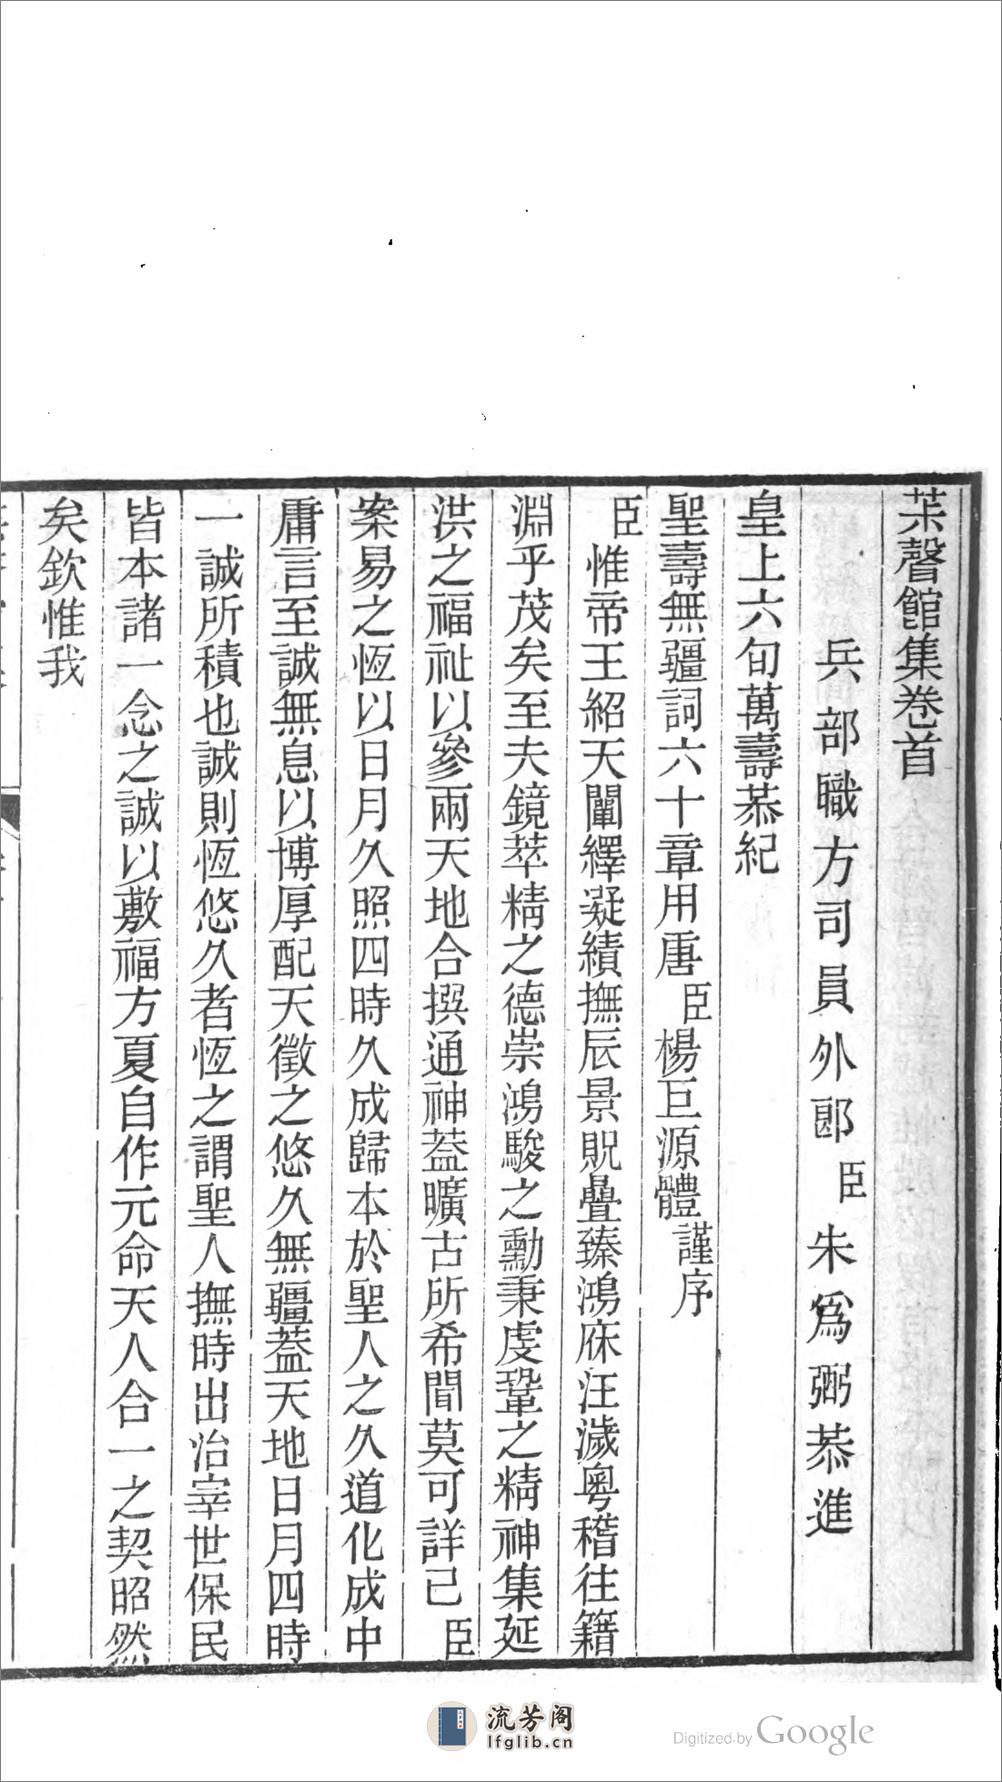 茮聲館集卷首
兵部職方司員外郎臣朱爲弼恭進
皇上六旬萬壽恭紀
聖壽無疆詞六十章用唐臣楊巨源體謹序
臣惟帝王紹天闡繹凝績撫辰景貺疊臻鴻庥汪濊粵稽往籍
淵乎茂矣至夫鏡萃精之德崇鴻駿之勳秉虔鞏之精神集延
洪之福祉以參兩天地合撰通神蓋曠古所希閒莫可詳已臣
案易之恆以日月久照四時久成歸本於聖人之久道化成中
庸言至誠無息以博厚配天徵之悠久無疆蓋天地日月四時
一誠所積也誠則恆悠久者恆之謂聖人撫時出治宰世保民
皆本諸一念之誠以敷福方夏自作元命天人合一之契昭然
矣欽惟我
流芳阁
lfglib.cn
Digitized by Google